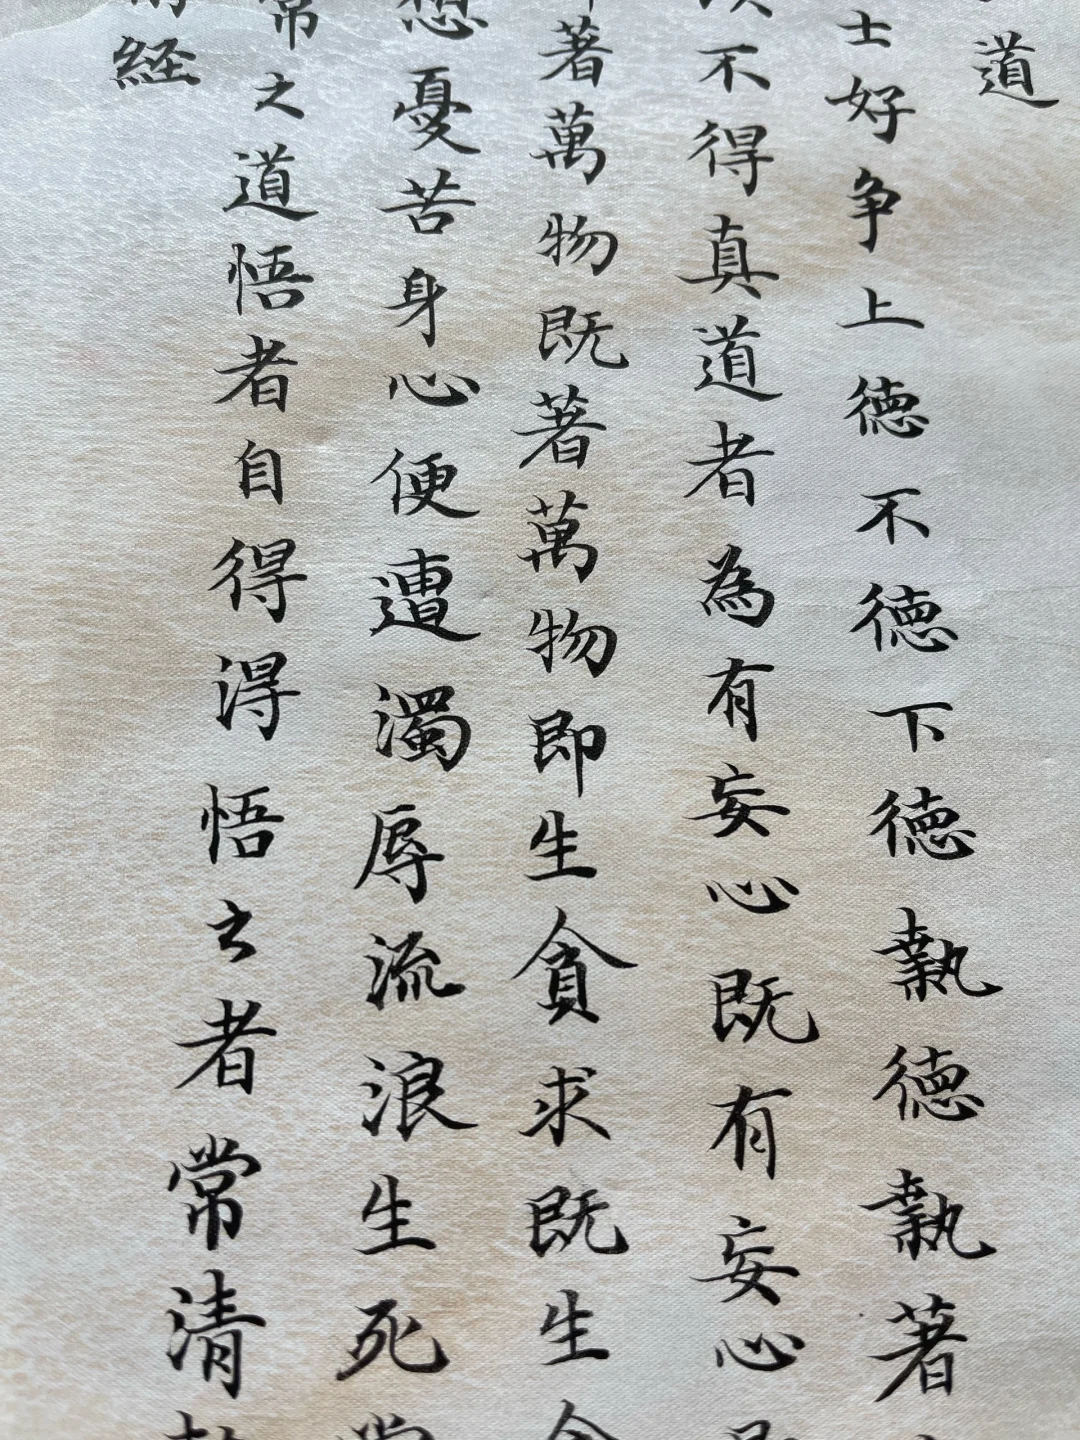 道
士好争上德不德下德執德執著
不得真道者為有妄心既有妄心
著萬物既著萬物即生貪求既生
想憂苦身心便遭濁辱流浪生死
常之道悟者自得淂悟之者常清
経